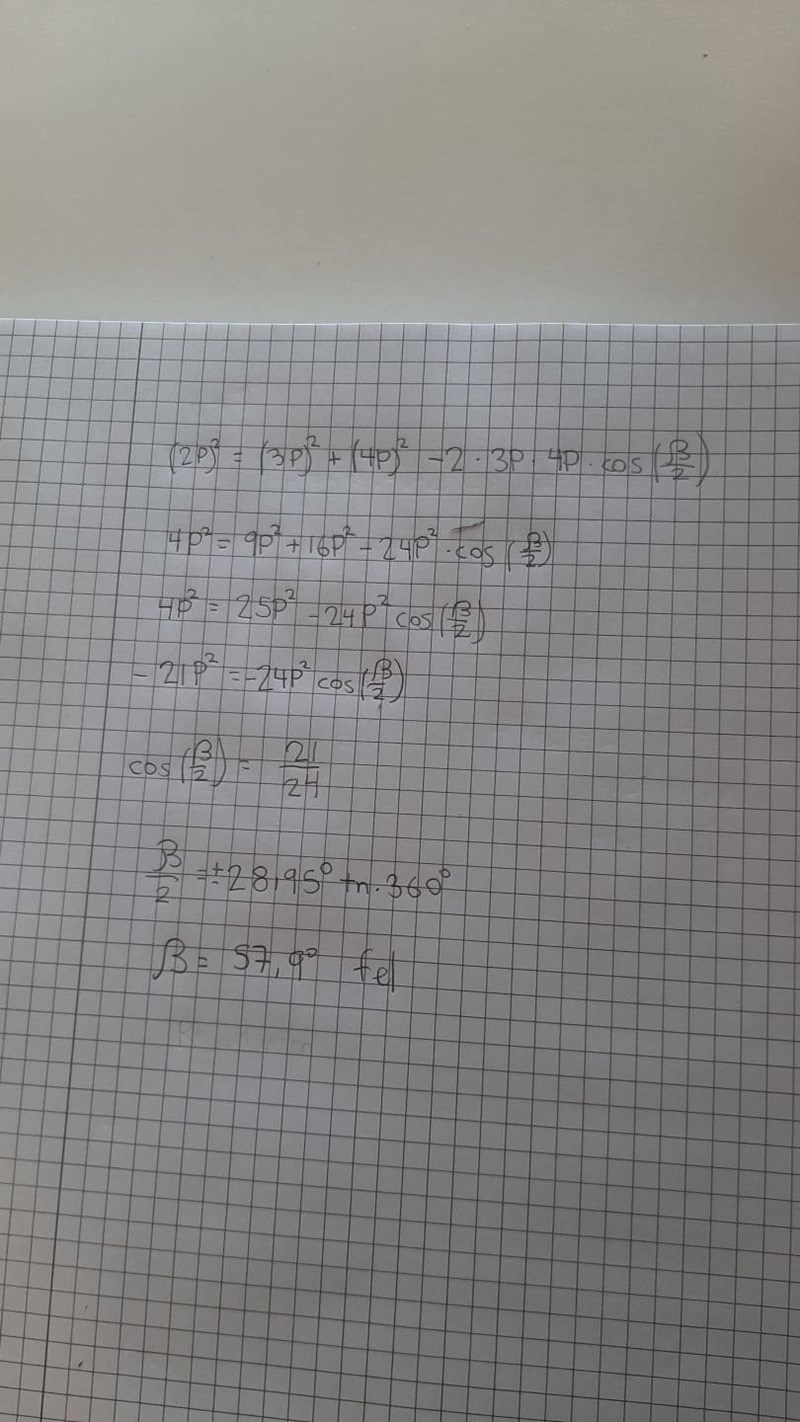 (2p)² = (3p)² + (4p)² - 2 · 3p · 4p · cos(β/2)
4p² = 9p² + 16p² - 24p² · cos(β/2)
4p² = 25p² - 24p² cos(β/2)
- 21p² = -24p² cos(β/2)
cos(β/2) = 21/24
β/2 = ± 28,95° + n · 360°
β = 57,9° fel